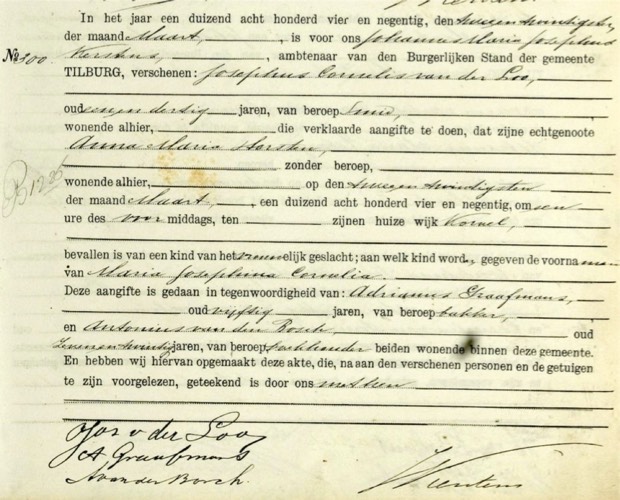 In het jaar een duizend acht honderd vier en negentig, den tweeen twintigsten
der maand Maart, is voor ons Johannes Maria Josephus
Kerstens, ambtenaar van den Burgerlijken Stand der gemeente
No. 300
TILBURG, verschenen: Josephus Cornelis van der Loo,
oud een en dertig jaren, van beroep Smid,
wonende alhier, die verklaarde aangifte te doen, dat zijne echtgenoote
Anna Maria
zonder beroep,
wonende alhier, op den tweeen twintigsten
der maand Maart, een duizend acht honderd vier en negentig, om een
ure des voor middags, ten zijnen huize wijk Korvel,
bevallen is van een kind van het vrouwelijk geslacht; aan welk kind word. gegeven de voorna men
van Maria Josephina Cornelia.
Deze aangifte is gedaan in tegenwoordigheid van: Adrianus Graafmans,
oud vijftig jaren, van beroep bakker,
en Antonius van den Bosch, oud
Zeven en twintig jaren, van beroep boekhouder beiden wonende binnen deze gemeente.
En hebben wij hiervan opgemaakt deze akte, die, na aan den verschenen personen en de getuigen
te zijn voorgelezen, geteekend is door ons met hen
Jos v der Loo
A Graafmans
A vanden Bosch.
JKerstens